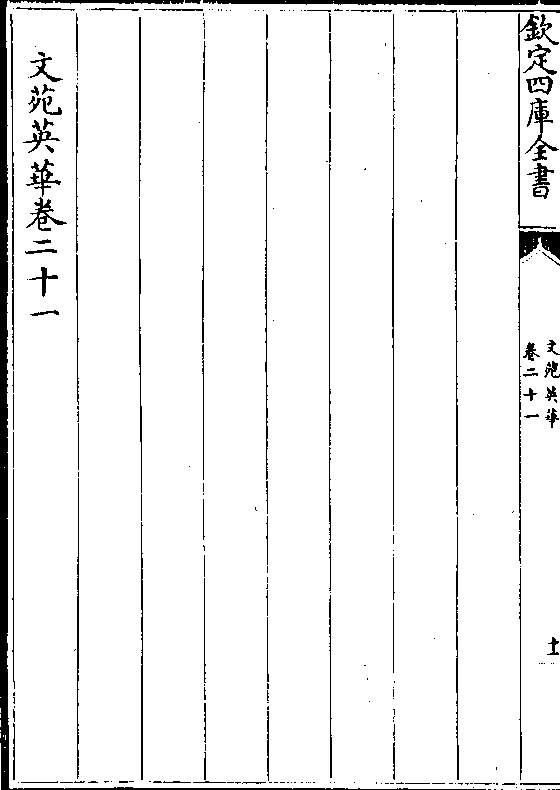 欽定四庫全書
文苑英華
卷二十一
十一
文苑英華卷二十一